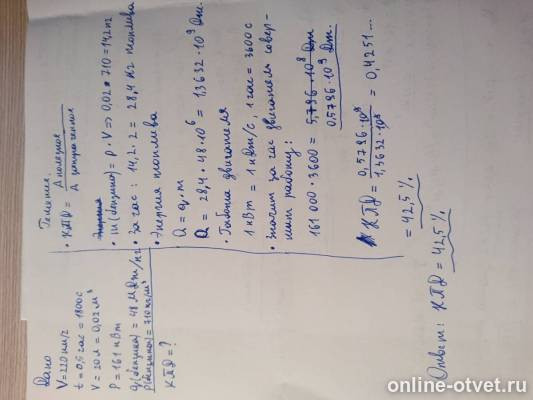 Дано
V=220 км/г
t = 0,5 час = 1800с
V = 20л = 0,02 м³
P = 161 кВт
q(бензина) = 48 МДж/кг
ρ(бензина) = 710 кг/м³
КПД = ?
Решения.
• КПД = A полезная / A затраченная
• m(бензина) = ρ · V => 0,02 · 710 = 14,2 кг
• За час: 14,2 · 2 = 28,4 кг топлива
• Энергия топлива
Q = q · m
Q = 28,4 · 48·10⁶ = 1,3632 · 10⁹ Дж.
• Работа двигателя
1 кВт = 1 кДж/с, 1 час = 3600 с
• Значит за час двигатель совер-
шит работу:
161 000 · 3600 = 5,796 · 10⁸ Дж
0,5796 · 10⁹ Дж.
КПД = 0,5796 · 10⁹ / 1,3632 · 10⁹ = 0,4251...
= 42,5 %
Ответ: КПД = 42,5 %
online-otvet.ru